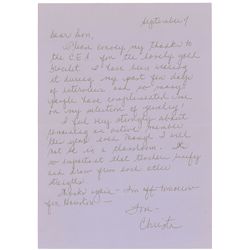 September 7
Dear Don,
Please convey my thanks
to the C.E.A. for the lovely gold
bracelet. I have been wearing
it during my past few days
of interviews and so many
people have complimented me
on my selection of jewelry!
I feel very strongly about
remaining an active member
this year even though I will
not be in a classroom. It's
so important that teachers unify
and draw from each other
strength.
Thanks again - I'm off tomorrow
for Houston -
Christa